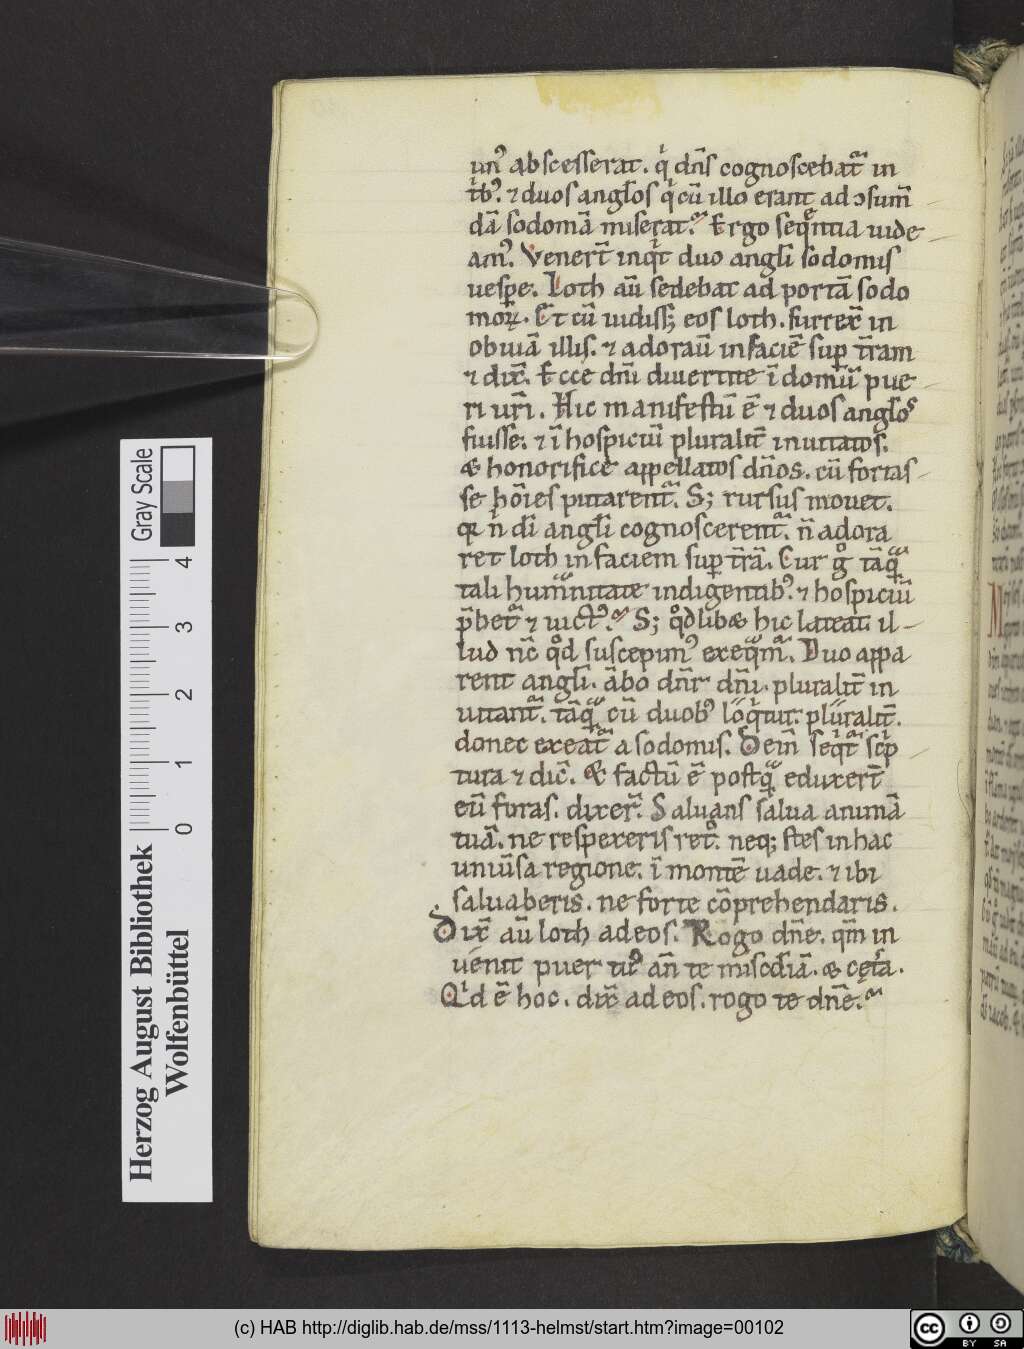 unꝰ abscesserat. qͥ dn̄s cognoscebat᷑ in
tͥbꝰ. ⁊ duos anglos qͥ cū illo erant ad ↄsum̄
dā sodomā miserat. Ergo seqͣntia uide
amꝰ. Vener̄t inqͥt duo angli sodomis
uesꝑe. Loth aū sedebat ad portā sodo
moꝝ. Et cū uidiss; eos loth. surrex̄ in
obuiā illis. ⁊ adorau̅ in faciē suꝑ t̄ram
⁊ dix̄. Ecce dn̄i diuertite ī domū pue
ri ur̄i. Hic manifestū ē ⁊ duos anglos
fuisse. ⁊ ī hospiciū pluralit̄ inuitatos.
& honorifice appellatos dn̄os. cū fortas
se hoīes putarent᷑. S; rursus mouet.
qͥ n̄ dī angli cognoscerent᷑. n̄ adora
ret loth in faciem suꝑ t̄rā. Cur gͦ tāqͣ
tali humͣnitate indigentibꝰ. ⁊ hospiciū
p̄bet᷑ ⁊ uictꝰ. S; qͦdlib& hic lateat il
lud n̄c qͦd suscepimꝰ exeqͣm᷑. Duo appa
rent angli. ābo dn̄r dn̄i. pluralit̄ in
uitant᷑. tāqͣ cū duobꝰ lōqͥtur. pluralit̄.
donec exeat᷑ a sodomis. Dein̄ seqͥt᷑ scͥp
tura ⁊ dic̄. & factū ē postqͣ eduxer̄t
eū foras. dixer̄. Saluans salua animā
tuā. ne respexeris retͦ. neq; stes in hac
uniūsa regione. ī montē uade. ⁊ ibi
saluaberis. ne forte cōprehendaris.
Dix̄ aū loth ad eos. Rogo dn̄e. qm̄ in
uenit puer tuꝰ an̄ te miscdiā. & cęt̄a.
Qͥd ē hoc. dix̄ ad eos. rogo te dn̄e.
Gray Scale
0 1 2 3 4
Herzog August Bibliothek
Wolfenbüttel
(c) HAB http://diglib.hab.de/mss/1113-helmst/start.htm?image=00102
cc BY SA